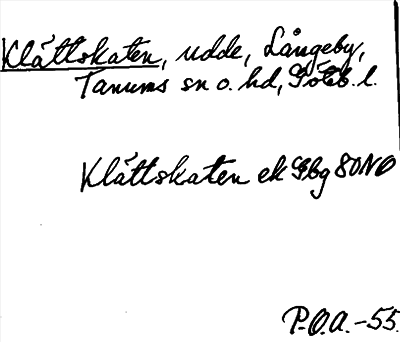 Klåttskaten, udde, Långeby,
Tanums sn o. hd, Göteb. l.
Klåttskaten ek Gbg 80NO
P.O.A. -55.